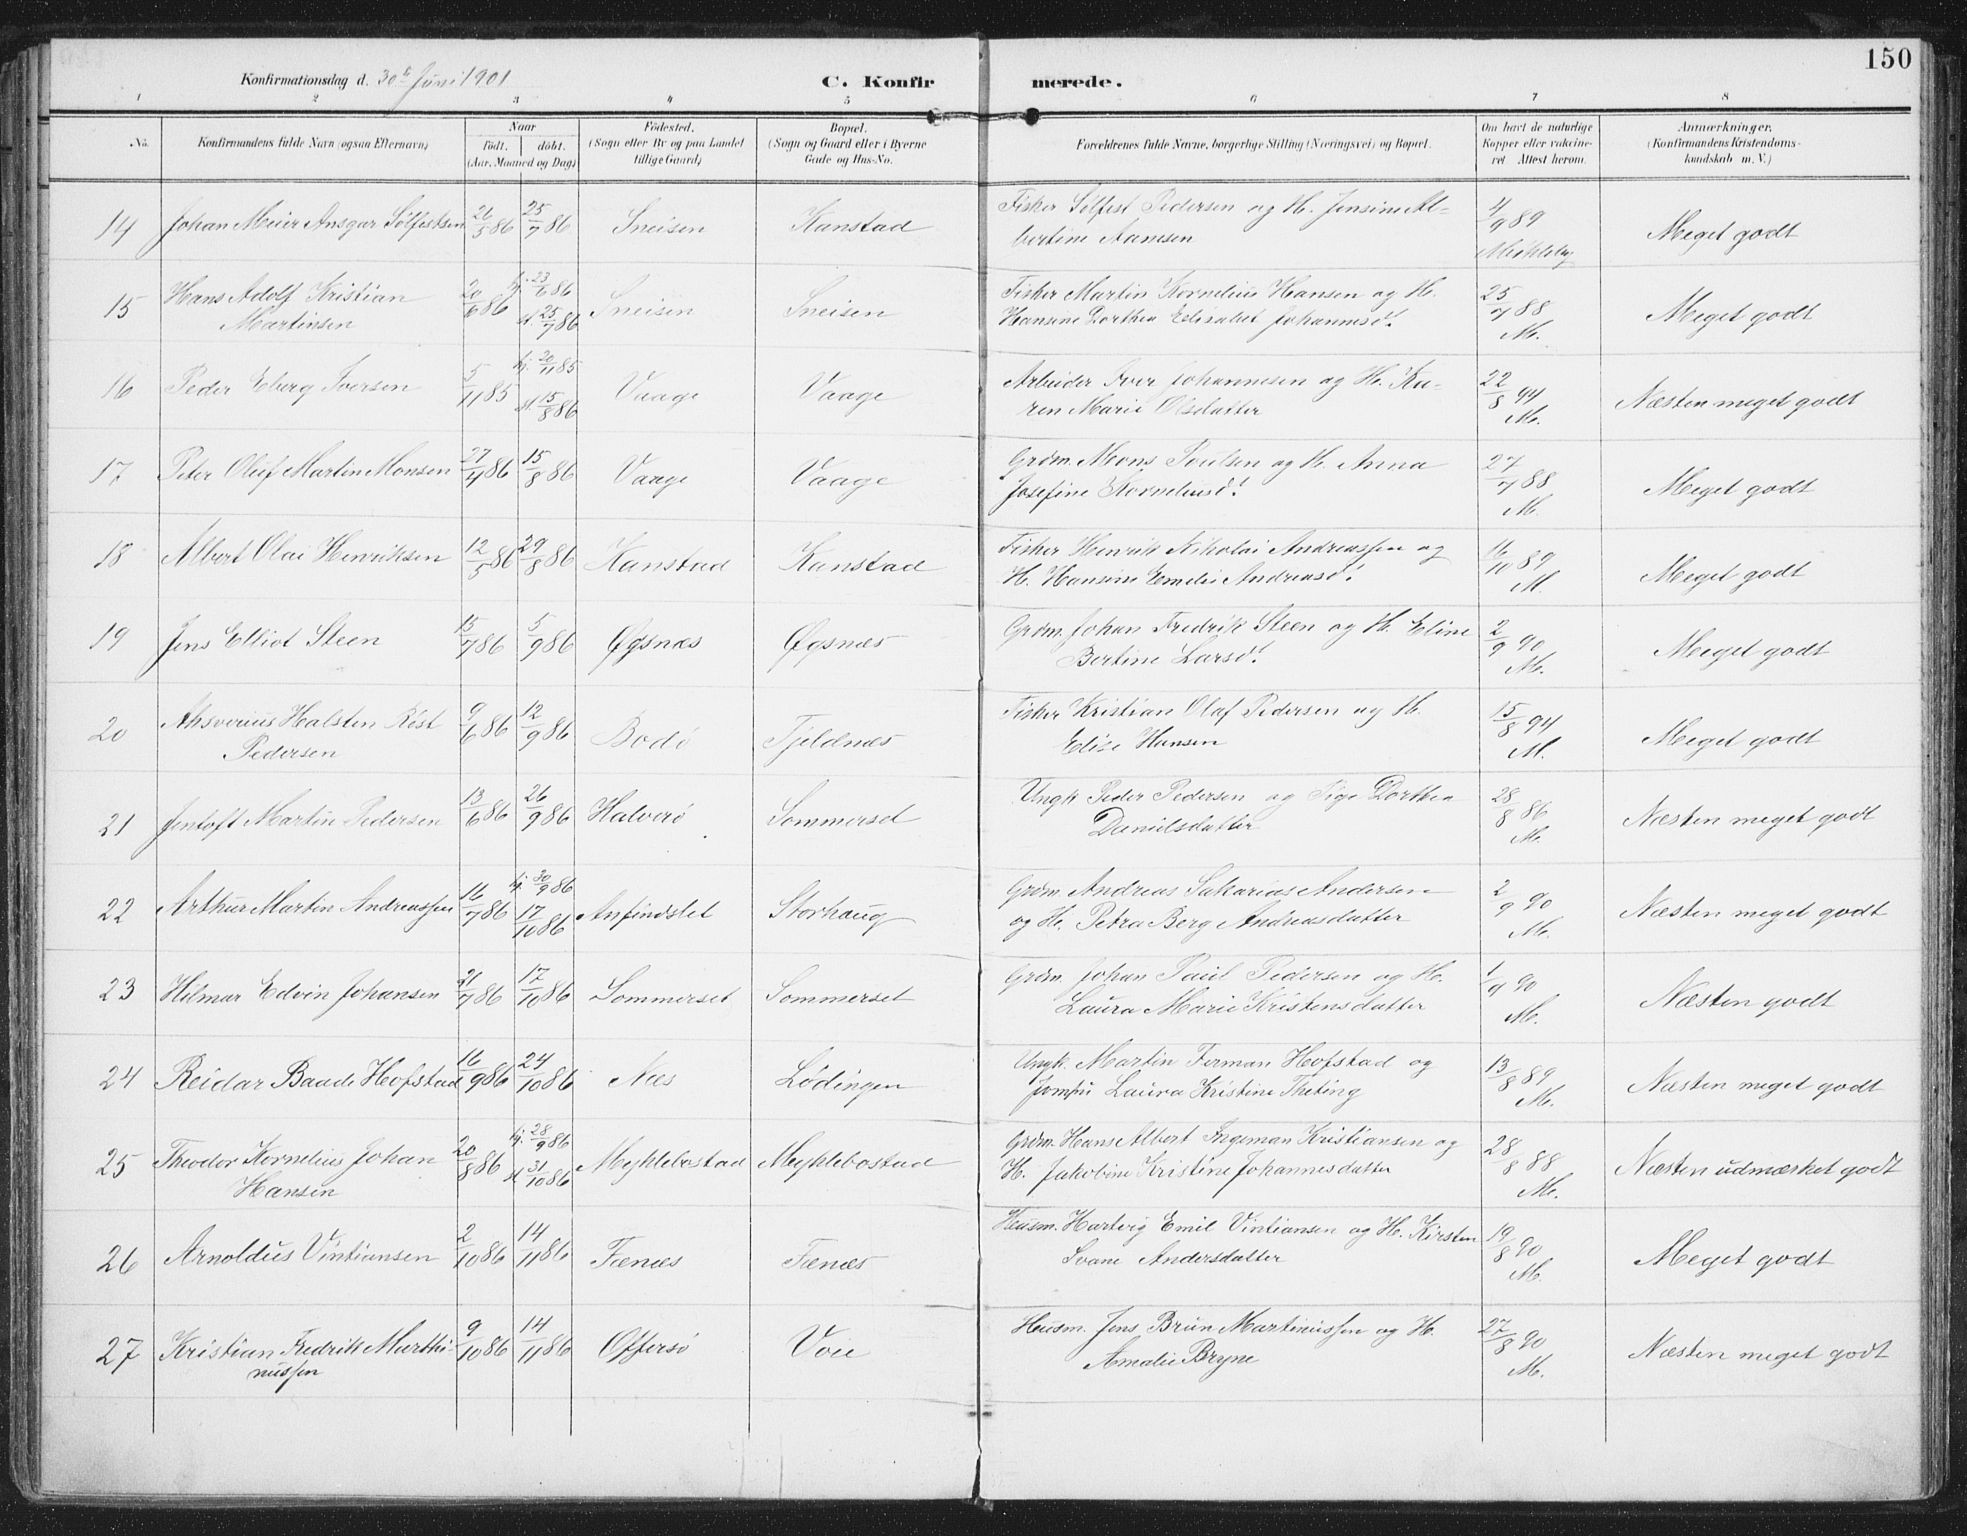 150
Konfirmationsdag d. 30te Juni 1901
C. Konfirmerede.
1 2 3 4 5 6 7 8
No. Konfirmandens fulde Navn (ogsaa Efternavn) Naar født. døbt. (Aar, Maaned og Dag) Fødested. (Sogn eller By og paa Landet tillige Gaard) Bopæl. (Sogn og Gaard eller i Byerne Gade og Hus-No. Forældrenes fulde Navne, borgerlige Stilling (Næringsvei) og Bopæl. Om havt de naturlige Kopper eller vakcineret. Attest herom. Anmærkninger. (Konfirmandens Kristendomskundskab m. V.)
14 Johan Meier Ansgar Sølfestsen 26/5 86 25/7 86 Sneisen Kanstad Fisker Sølfest Pedersen og H. Jensine Al-
bertine Aamsen 4/9 89 Meget godt
15 Hans Adolf Kristian
Martinsen 20/6 86 hj. 23/6 86 st. 25/7 86 Sneisen Sneisen Fisker Martin Kornelius Hansen og H.
Hansine Dorthea Elisabet Johannesd! 25/7 88 M. Meget godt
16 Peder Eberg Iversen 5/11 85 hj. 20/11 85 st. 15/8 86 Vaage Vaage Arbeider Iver Johannesen og H. Ka-
ren Marie Olsdatter 22/8 94 M. Næsten meget godt
17 Peter Oluf Martin Monsen 27/4 86 15/8 86 Vaage Vaage Grdm. Mons Poulsen og H. Anna
Josefine Korneliusd! 27/7 88 M. Meget godt
18 Albert Olai Henriksen 12/5 86 29/8 86 Kanstad Kanstad Fisker Henrik Nikolai Andreassen og
H. Hansine Emelie Andreasd! 16/10 89 M. Meget godt
19 Jens Elliot Steen 15/7 86 5/9 86 Øgsnæs Øgsnæs Grdm. Johan Fredrik Steen og H. Eline
Bertine Larsd! 2/9 90 M. Meget godt
20 Ahsverius Halsten Røst
Pedersen 9/6 86 12/9 86 Bodø Tjeldnæs Fisker Kristian Olaf Pedersen og H.
Elise Hansen 15/8 94 M. Meget godt
21 Jentoft Martin Pedersen 13/6 86 26/9 86 Halverø Sommerset Ungk. Peder Pedersen og Pige Dorthea
Danielsdatter 28/8 86 M. Næsten meget godt
22 Arthur Martin Andreassen 16/7 86 hj. 30/9 86 17/10 86 Anfindslet Storhaug Grdm. Andreas Sakarias Andersen
og H. Petra Berg Andreasdatter 2/9 90 M. Næsten meget godt
23 Hilmar Edvin Johansen 21/7 86 17/10 86 Sommerset Sommerset Grdm. Johan Paul Pedersen og H.
Laura Marie Kristensdatter 1/9 90 M. Næsten godt
24 Reidar Baade Hofstad 16/9 86 24/10 86 Næs Lødingen Ungk. Martin Ferman Hofstad og
Jomfru Laura Kristine Theting 13/8 89 M. Næsten meget godt
25 Theodor Kornelius Johan
Hansen 20/8 86 hj. 28/9 86 st. 31/10 86 Myklebostad Myklebostad Grdm. Hans Albert Ingeman Kristiansen og
H. Jakobine Kristine Johannesdatter 28/8 88 M. Næsten udmærket godt
26 Arnoldus Vintiansen 2/10 86 14/11 86 Fænæs Fænæs Husm. Hartvig Emil Vintiansen og H. Kirsten
Svane Andersdatter 19/8 90 M. Meget godt
27 Kristian Fredrik Marthi-
nussen 9/10 86 14/11 86 Offersø Voie Husm. Jens Brun Martinussen og H.
Amalie Bryne 27/8 90 M. Næsten meget godt